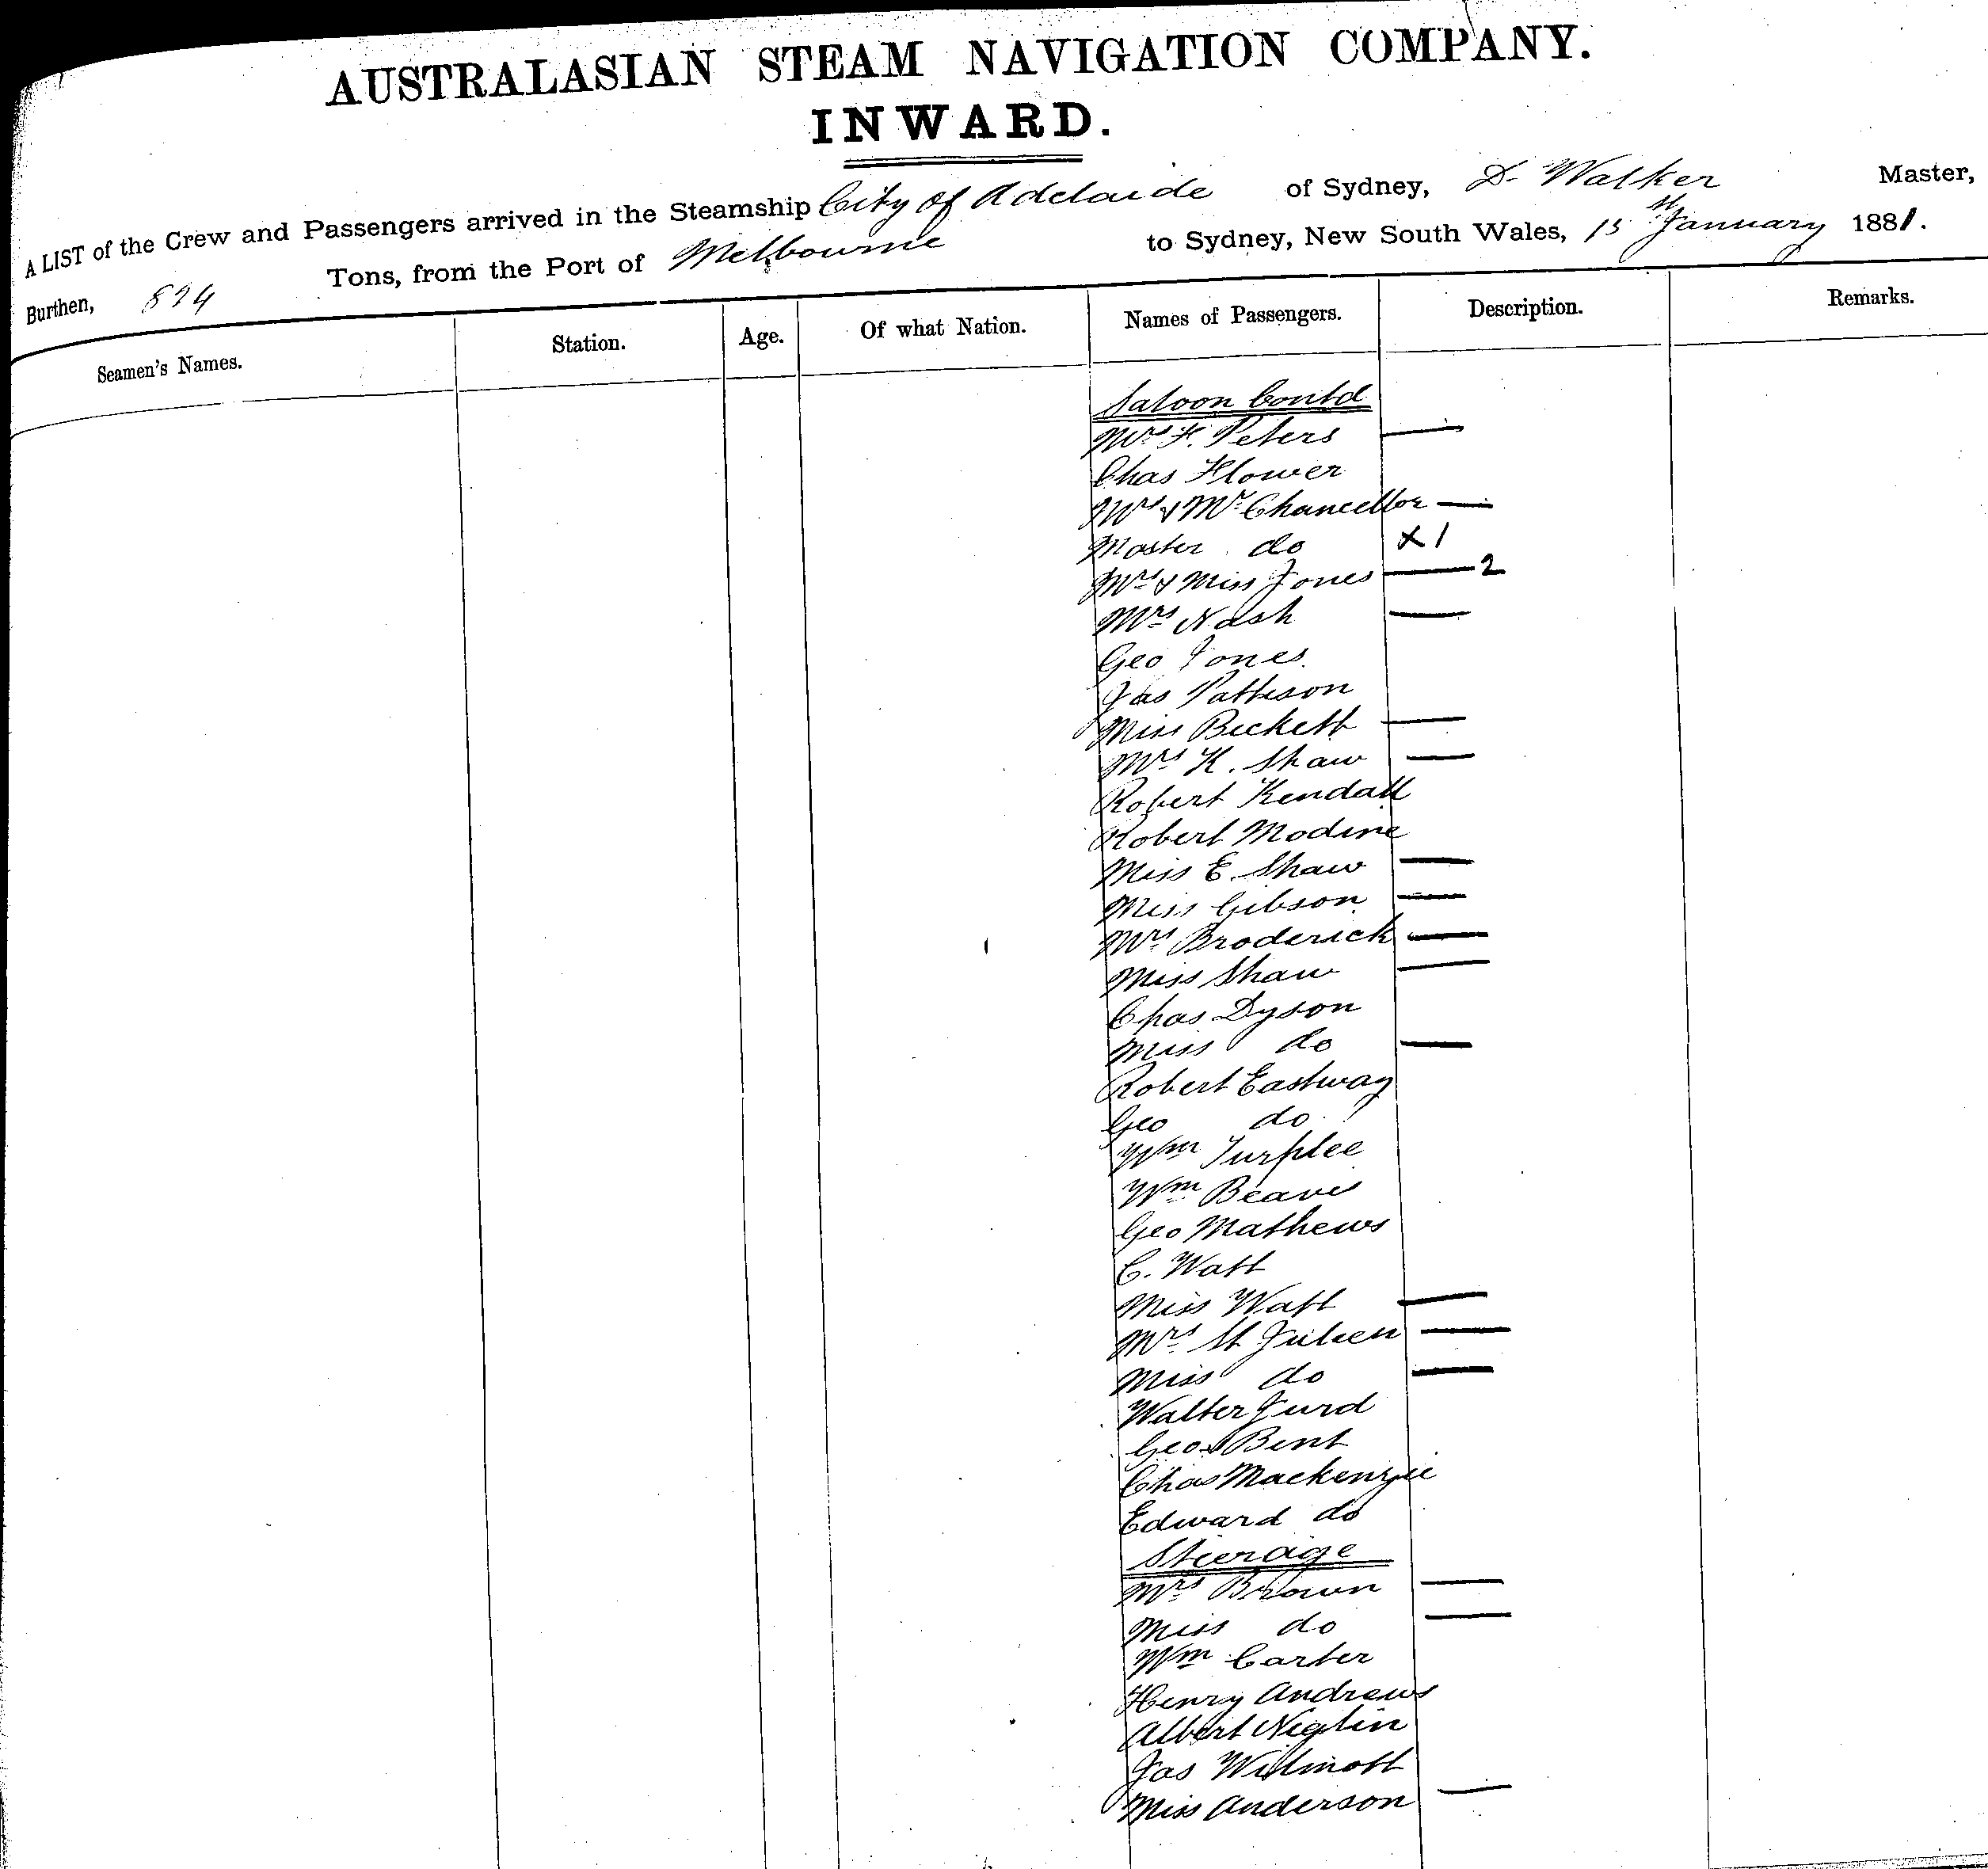 AUSTRALASIAN STEAM NAVIGATION COMPANY.
INWARD.
A LIST of the Crew and Passengers arrived in the Steamship City of Adelaide of Sydney, D. Walker Master,
Burthen, 824 Tons, from the Port of Melbourne to Sydney, New South Wales, 15 January 1881.
Seamen's Names. Station. Age. Of what Nation. Names of Passengers. Description. Remarks.
Saloon Contd
Mrs F. Peters —
Chas Flower
Mrs & Mr Chancellor —
Master do x 1
Mrs & Miss Jones — 2
Mrs Nash —
Geo Jones.
Jas Patteson
Miss Beckett —
Mrs K. Shaw —
Robert Kendall
Robert Modine
Miss E. Shaw —
Miss Gibson —
Mrs Broderick —
Miss Shaw —
Chas Dyson
Miss do —
Robert Eastway
Geo do
Wm Turplee
Wm Beaves
Geo Mathews
C. Watt
Miss Watt —
Mrs St Julien —
Miss do —
Walter Jurd
Geo Bent
Chas Mackenzie
Edward do
Steerage
Mrs Brown —
Miss do —
Wm Carter
Henry Andrews
Albert
Jas Wilmott
Miss Anderson —